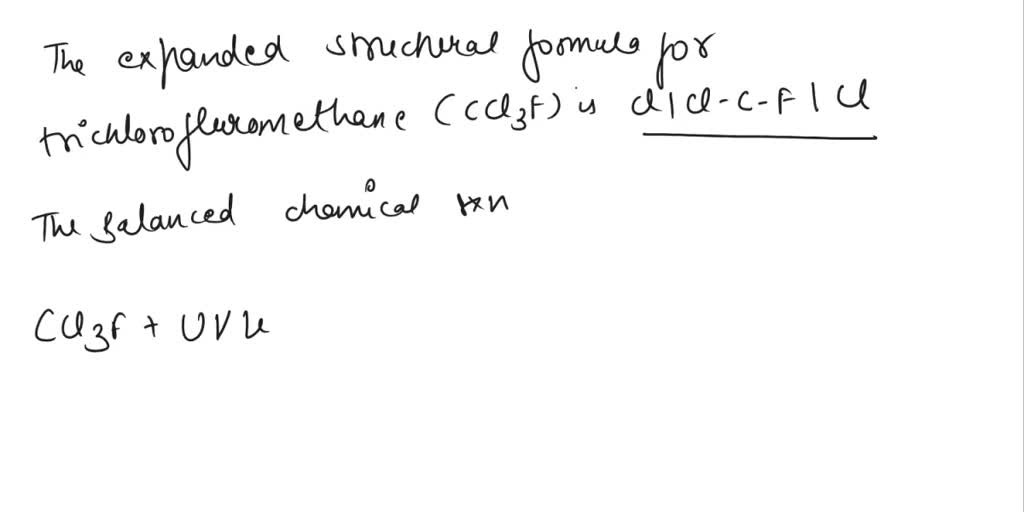 The expanded structural formula for
trichlorofluromethane (CCl3F) is Cl|Cl-C-F|Cl
The Balanced chemical rxn
CCl3F + UV